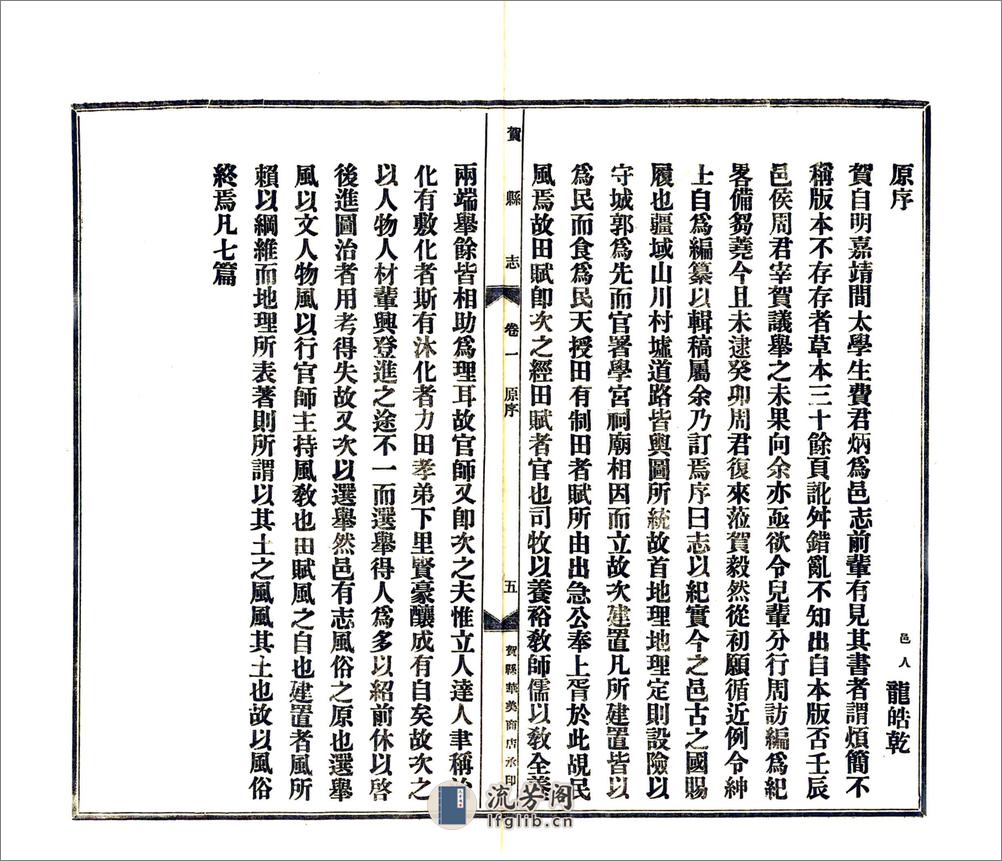 原序
邑人 龍皓乾
賀自明嘉靖間太學生費君炳爲邑志前輩有見其書者謂煩簡不
稱版本不存存者草本三十餘頁訛舛錯亂不知出自本版否壬辰
邑侯周君宰賀議舉之未果向余亦亟欲令兒輩分行周訪編爲紀
畧備芻蕘今且未逮癸卯周君復來蒞賀毅然從初願循近例令紳
士自爲編纂以輯稿屬余乃訂焉序曰志以紀實今之邑古之國賜
履也疆域山川村墟道路皆輿圖所統故首地理地理定則設險以
守城郭爲先而官署學宮祠廟相因而立故次建置凡所建置皆以
爲民而食爲民天授田有制田者賦所由出急公奉上胥於此覘民
風焉故田賦卽次之經田賦者官也司牧以養裕教師儒以教全養
賀縣志
卷一 原序
五
賀縣華美商店承印
兩端舉餘皆相助爲理耳故官師又卽次之夫惟立人達人聿稱治
化有敷化者斯有沐化者力田孝弟下里賢豪釀成有自矣故次之
以人物人材輩興登進之途不一而選舉得人爲多以紹前休以啓
後進圖治者用考得失故又次以選舉然邑有志風俗之原也選舉
風以文人物風以行官師主持風教也田賦風之自也建置者風所
賴以綱維而地理所表著則所謂以其土之風風其土也故以風俗
終焉凡七篇
流芳阁
lfglib.cn